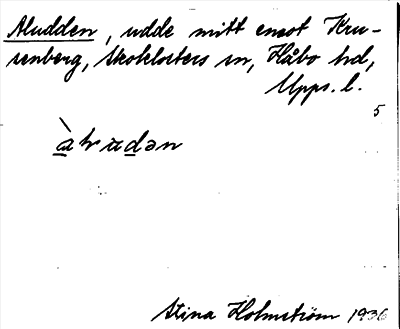 Aludden, udde mitt emot Kru-
senberg, Skoklosters sn, Håbo hd,
Upps. l.
5
Stina Holmström 1936